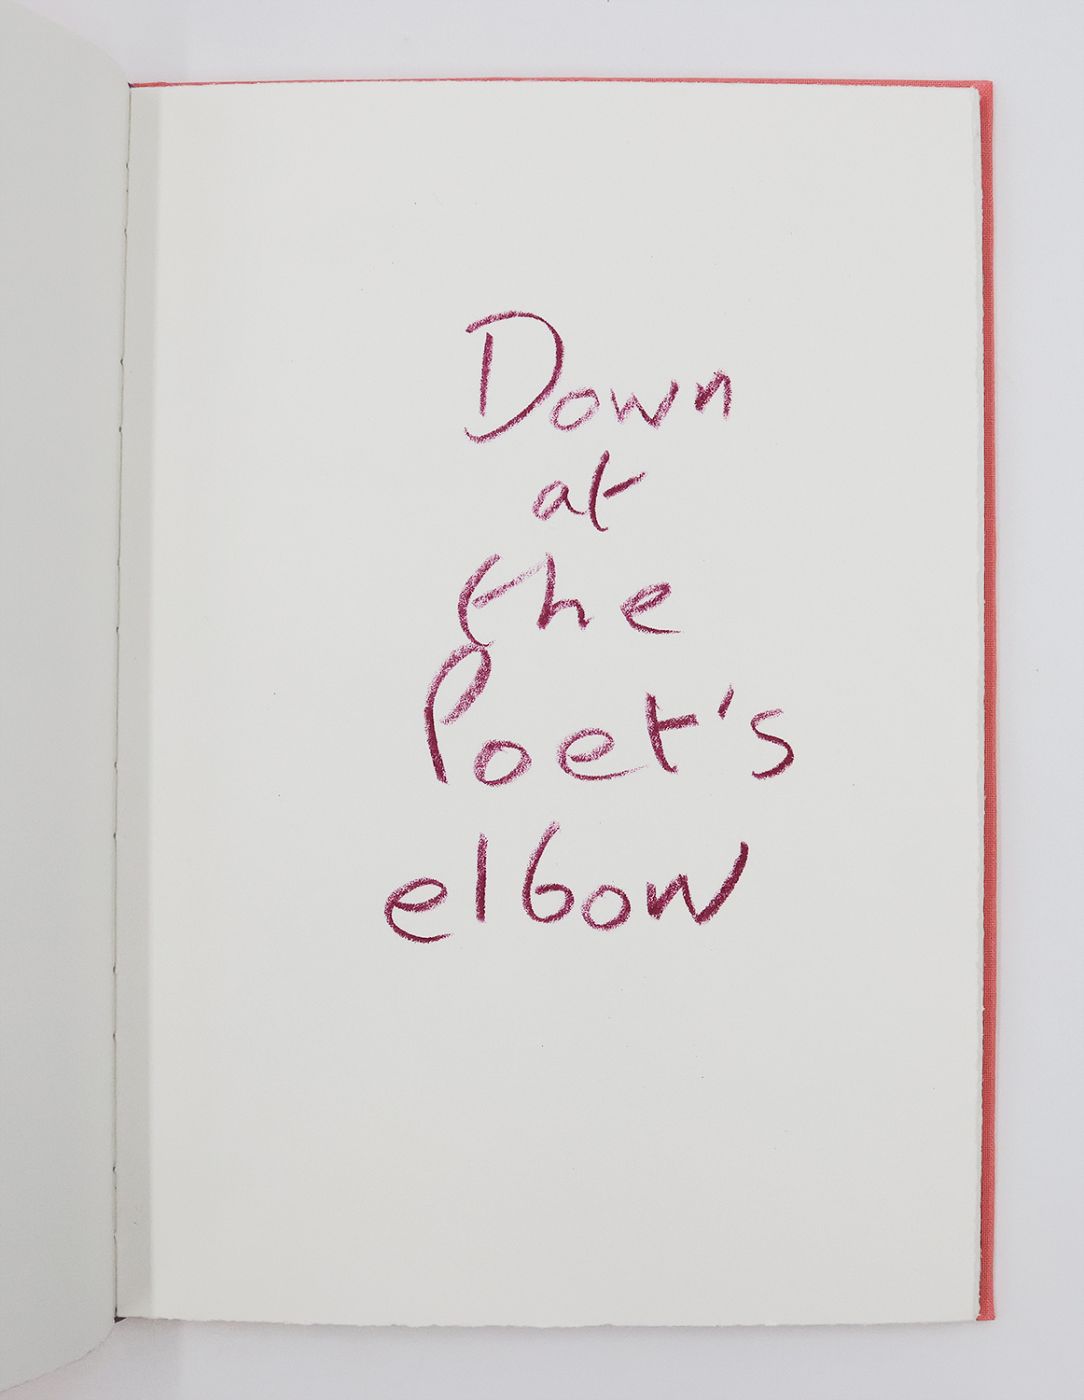 Down
at
the
Poet's
elbow